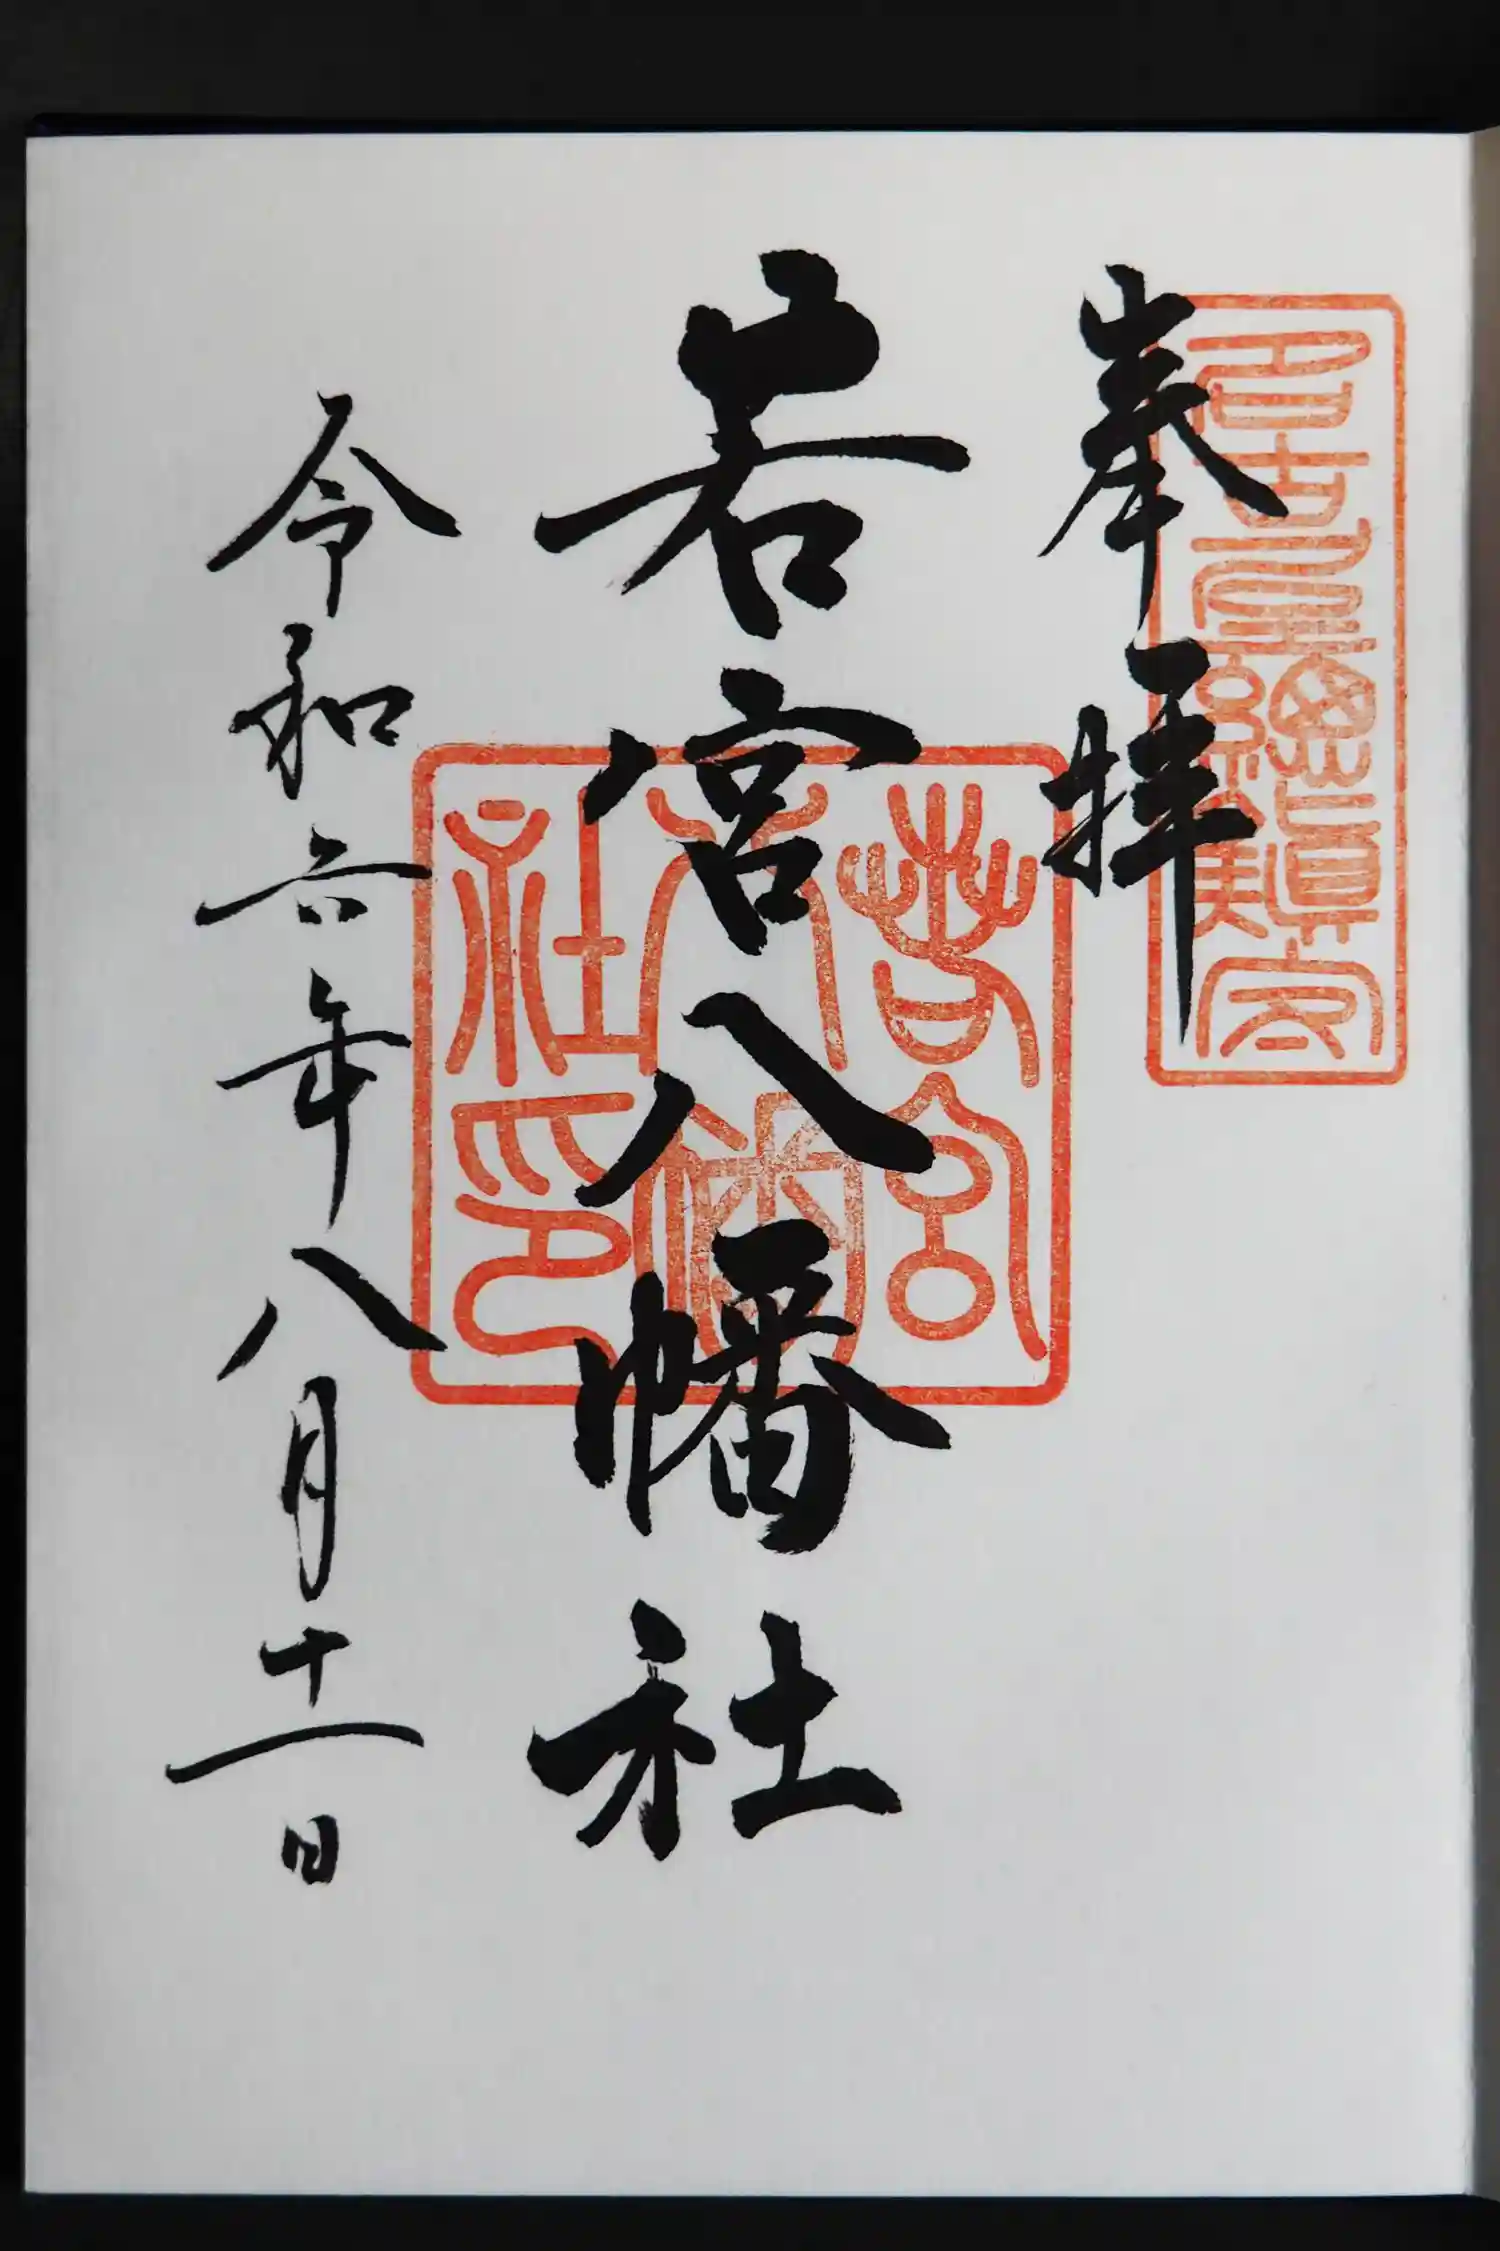 奉拝
名古屋總鎮守
若宮八幡社
若宮八幡社印
令和六年八月十一日